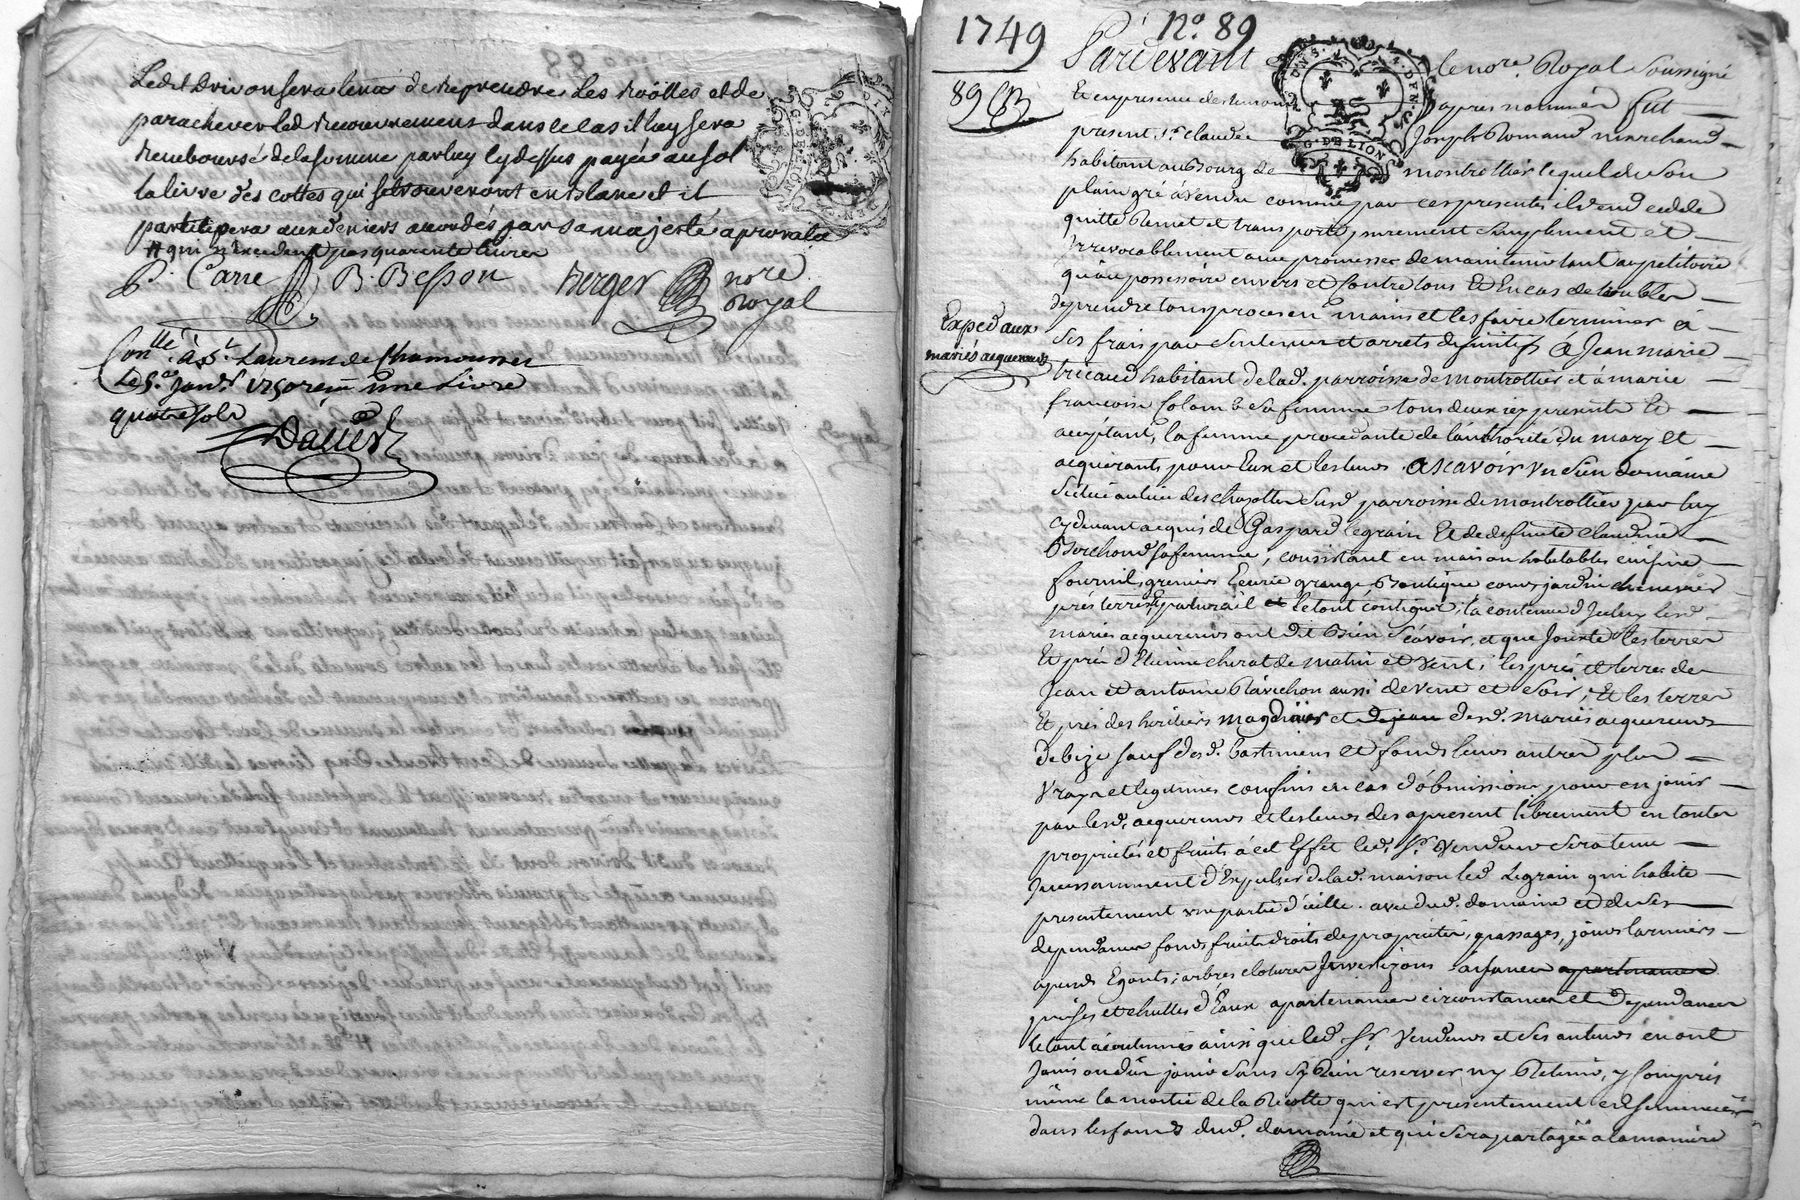 Led. Drivon sera tenu de reprendre les roolles et de
parachever led. recouvrement dans le cas il luy sera
remboursé de la somme par luy cy dessus payée au sol
la livre des cottes qui se trouveront en blanc et il
participera aux deniers accordés par sa majesté a prorata
# qui n'excedent pas quarente livres
P. Carre B. Besson Berger nore
Royal
Conllé à St. Laurent de Chamousset
le 5e. janvr. 1750 reçu une livre
quatre sols
G. DE LION
1749 No. 89
Pardevant le nore. Royal soussigné
89
Et en presence des temoins apres nommés fut
present sr. Claude Joseph Romand marchand
G. DE LION
habitant au Bourg de montrottier lequel de son
plain gré a vendu comme par ces presentes il vend cedde
quitte remet et transporte purement simplement et
irrevocablement avec promesse de maintenir tant au petitoire
qu'au possessoire envers et contre tous et en cas de troubles
de prendre tous proces en mains et les faire terminer à
Exped. aux
mariés acquereurs
ses frais par sentences et arrets definitifs A Jean marie
tricaud habitant de lad. parroisse de montrottier et à marie
francoise Colomb sa femme tous deux icy presents et
acceptant, la femme procedante de l'authorité du mary et
acquerants pour eux et les leurs Ascavoir un sien domaine
situé au lieu des chazottes susd. parroisse de montrottier par luy
cy devant acquis de Gaspard legrain et de defunte claudine
sa femme, consistant en maison habitable cuisine
fournil, greniers Ecurie grange, Boutique cour jardin chenevier
prés terres, et paturail le tout contigue, la contenue d'Iceluy lesd.
mariés acquereurs ont dit bien scavoir, et que jouxte les terres
Et prés d'Etienne cherat de matin et vent, les prés et terres de
Jean et antoine Ravichon aussi de vent et soir, et les terres
Et prés des heritiers magdinier et de jean desd. mariés acquereurs
de bize sauf desd. bastimens et fonds leurs autres plus
vrays et legitimes confins en cas d'obmission pour en jouir
par lesd. acquereurs et les leurs des apresent librement en toutes
proprietés et fruits à cet effet led. sr. vendeur sera tenu
Incessamment d'Expulser de lad. maison led. Legrain qui habite
presentement une partie d'icelle avec dud. domaine et de ses
dependances fonds fruits droits de proprietés, passages, jours larmiers
apends Egouts, arbres clotures aisances apartenances
prises et chuttes d'Eaux apartenances circonstances et dependances
le tout acoutumés ainsi que led. sr. vendeur et ses auteurs en ont
Joui ou dû jouir sans s'y Rien reserver ny Retenir, y compris
même la moitié de la Recolte qui est presentement ensemencée
dans les fonds dud. domaine et qui sera partagée a la maniere